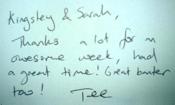 Kingsley & Sarah,
Thanks a lot for an
awesome week, had
a great time! Great banter
too!
Tee